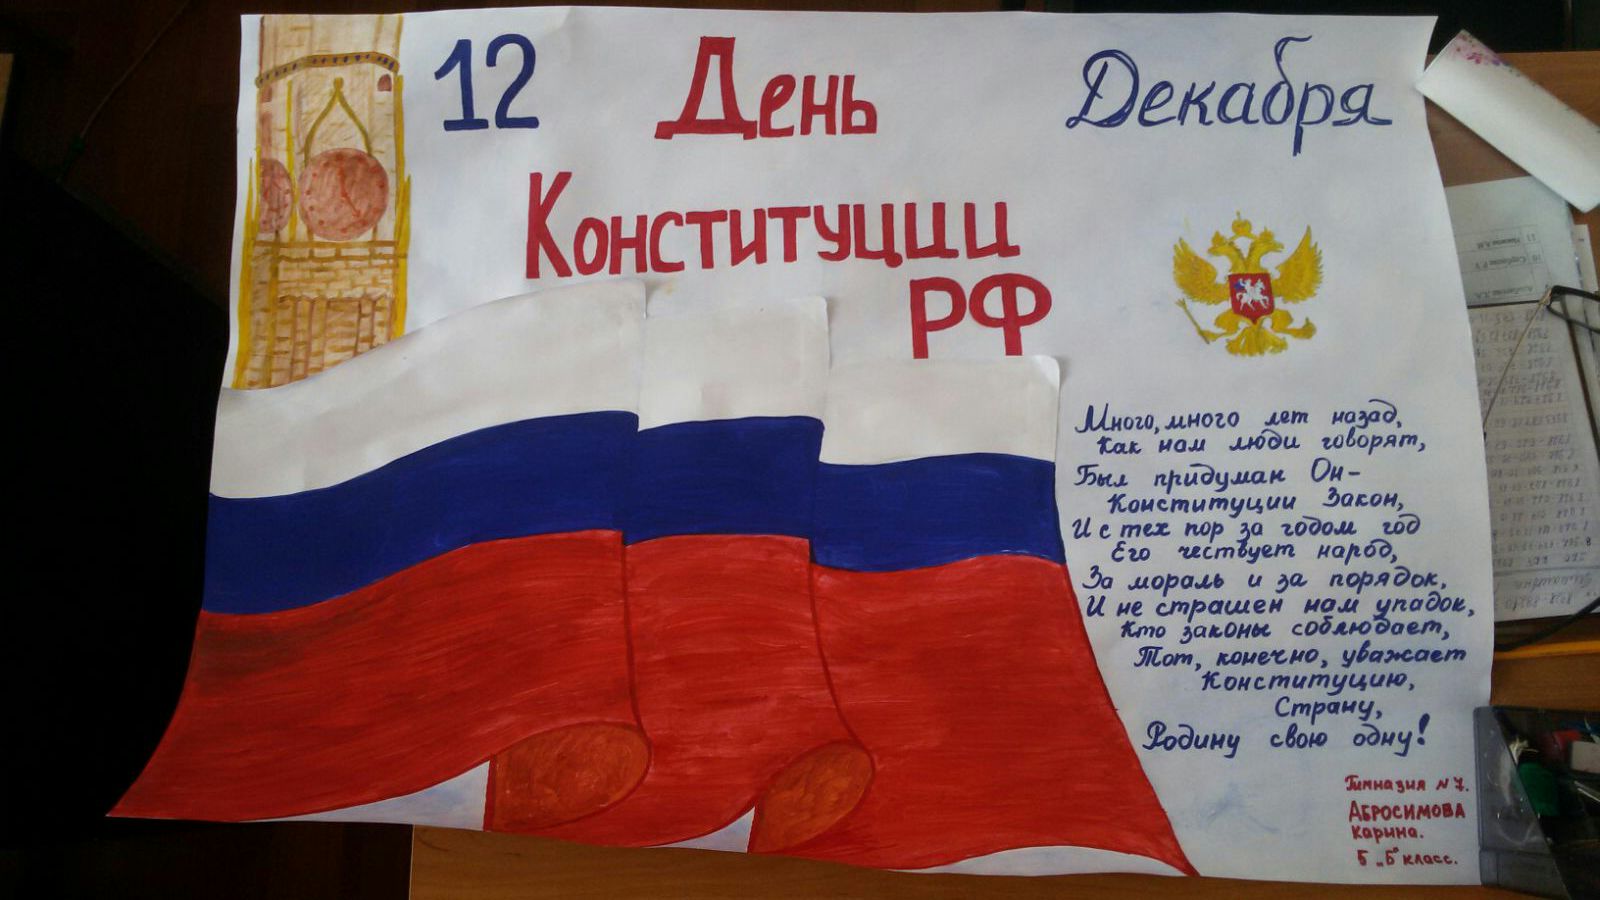 12 День Декабря
Конституции
РФ
Много, много лет назад,
Как нам люди говорят,
Был придуман Он-
Конституции Закон,
И с тех пор за годом год
Его чествует народ,
За мораль и за порядок,
И не страшен нам упадок,
Кто законы соблюдает,
Тот, конечно, уважает
Конституцию,
Страну,
Родину свою одну!
Гимназия N 7.
АБРОСИМОВА
Карина.
5 „Б" класс.